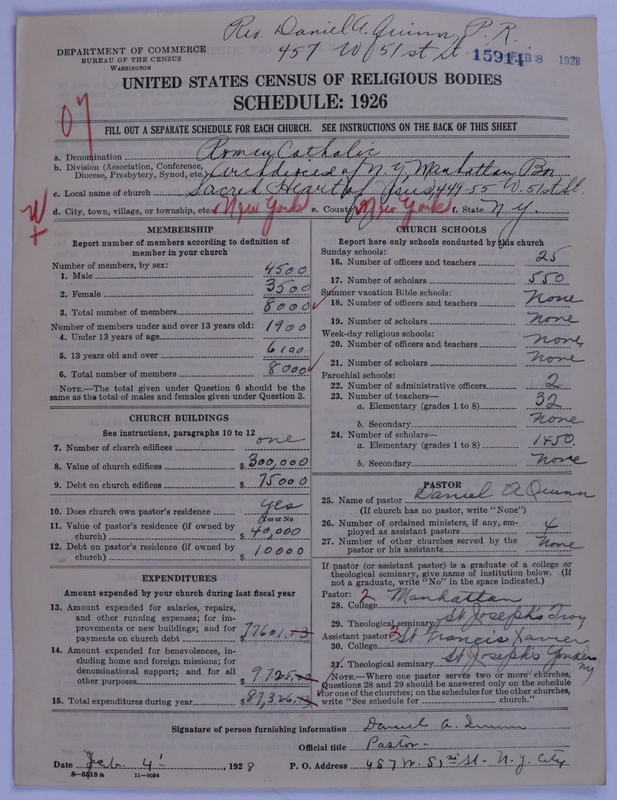 Rev. Daniel A. Quinn, P. R.
457 W 51st St.
15914 FEB 8 1928
DEPARTMENT OF COMMERCE
BUREAU OF THE CENSUS
WASHINGTON
UNITED STATES CENSUS OF RELIGIOUS BODIES
SCHEDULE: 1926
07
FILL OUT A SEPARATE SCHEDULE FOR EACH CHURCH. SEE INSTRUCTIONS ON THE BACK OF THIS SHEET
a. Denomination Roman Catholic
b. Division (Association, Conference, Diocese, Presbytery, Synod, etc. Archdiocese of N.Y. Manhattan Bor
c. Local name of church Sacred Heart of Jesus 449-55 W. 51st St.
d. City, town, village, or township, etc. New York e. County New York f. State N.Y.
MEMBERSHIP
Report number of members according to definition of
member in your church
Number of members, by sex:
1. Male 4500
2. Female 3500
3. Total number of members 8000
Number of members under and over 13 years old:
4. Under 13 years of age 1900
5. 13 years old and over 6100
6. Total number of members 8000
NOTE.—The total given under Question 6 should be the
same as the total of males and females given under Question 3.
CHURCH BUILDINGS
See instructions, paragraphs 10 to 12
7. Number of church edifices one
8. Value of church edifices $ 300,000
9. Debt on church edifices $ 75000
10. Does church own pastor's residence yes
Yes or No
11. Value of pastor's residence (if owned by
church) $ 40,000
12. Debt on pastor's residence (if owned by
church) $ 10000
EXPENDITURES
Amount expended by your church during last fiscal year
13. Amount expended for salaries, repairs,
and other running expenses; for im-
provements or new buildings; and for
payments on church debt $ 77601.43
14. Amount expended for benevolences, in-
cluding home and foreign missions; for
denominational support; and for all
other purposes $ 9725.00
15. Total expenditures during year $ 87,326.43
CHURCH SCHOOLS
Report here only schools conducted by this church
Sunday schools:
16. Number of officers and teachers 25
17. Number of scholars 550
Summer vacation Bible schools:
18. Number of officers and teachers None
19. Number of scholars None
Week-day religious schools:
20. Number of officers and teachers None
21. Number of scholars None
Parochial schools:
22. Number of administrative officers 2
23. Number of teachers—
a. Elementary (grades 1 to 8) 32
b. Secondary None
24. Number of scholars—
a. Elementary (grades 1 to 8) 1450
b. Secondary None
PASTOR
25. Name of pastor Daniel A Quinn
(If church has no pastor, write "None")
26. Number of ordained ministers, if any, em-
ployed as assistant pastors 4
27. Number of other churches served by the
pastor or his assistants None
If pastor (or assistant pastor) is a graduate of a college or
theological seminary, give name of institution below. (If
not a graduate, write "No" in the space indicated.)
Pastor: 2
28. College Manhattan
29. Theological seminary St Joseph's Troy
Assistant pastor: 2
30. College St Francis Xavier
31. Theological seminary St Joseph's Yonkers NY
NOTE.—Where one pastor serves two or more churches,
Questions 28 and 29 should be answered only on the schedule
for one of the churches; on the schedules for the other churches,
write "See schedule for church."
Signature of person furnishing information Daniel A. Quinn
Official title Pastor-
Date Feb. 4, 1928 P. O. Address 457 W. 51st St- N.Y. City
8—5518 a 11—9054